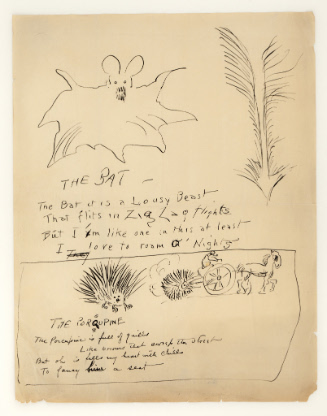 THE BAT —
The Bat it is a Lousy Beast
That flits in Zig Zag flights
But I am like one in this at least
I love to roam O' Nights
THE PORQUPINE
The Porcupine is full of quills
Like brooms that sweep the street
But oh it fills my heart with chills
To fancy in a seat